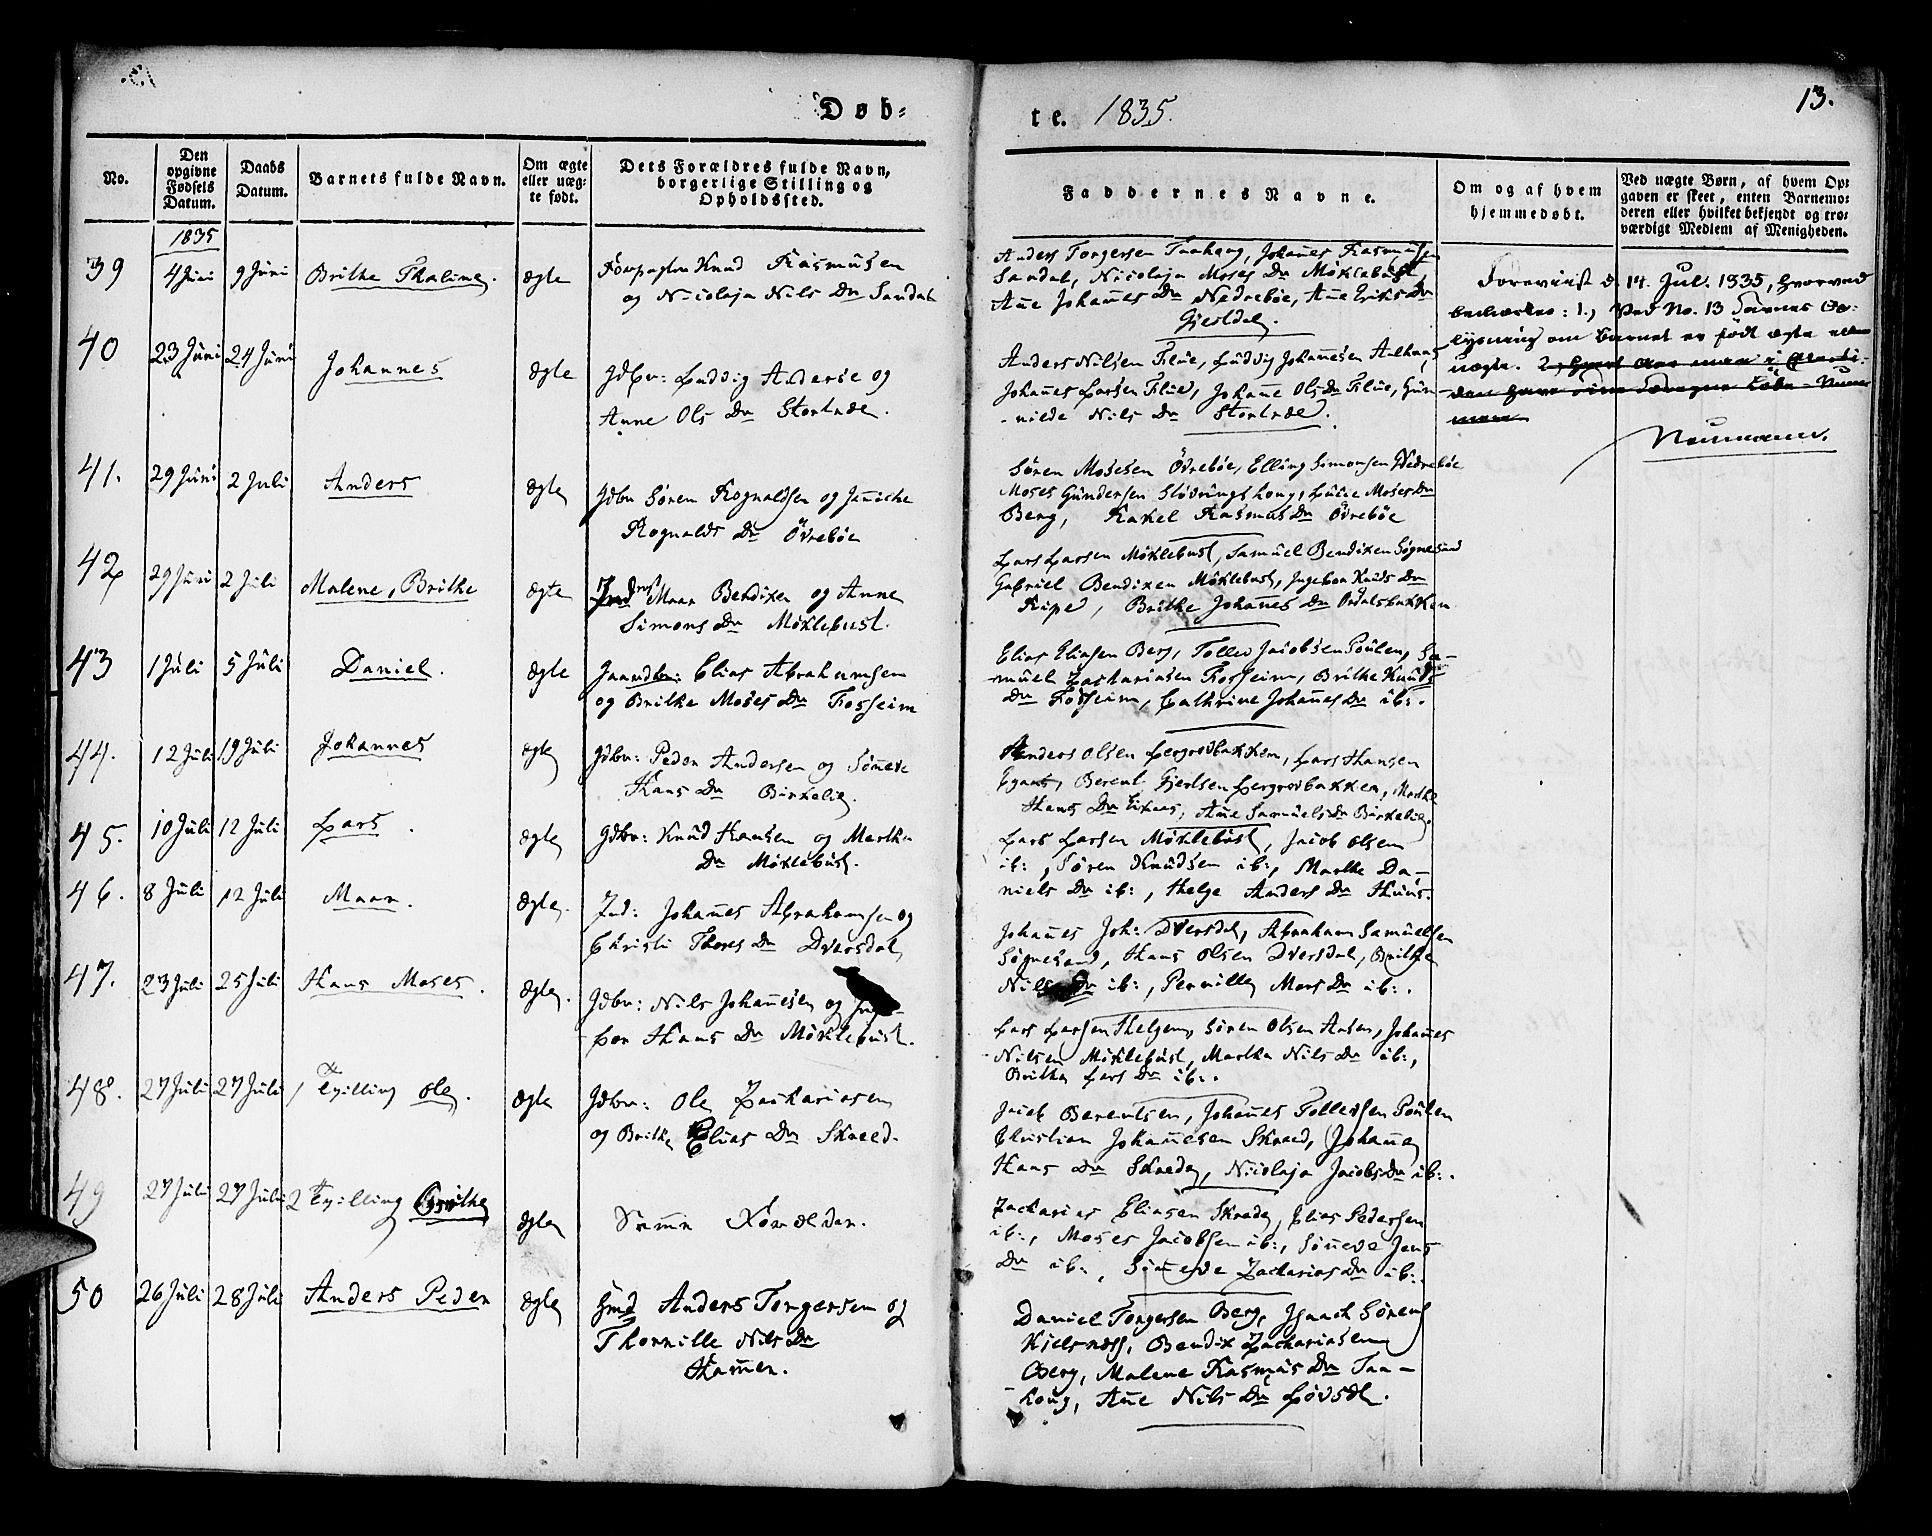 Døb-
te. 1835.
13.
No.
Den opgivne Fødsels Datum.
Daabs Datum.
Barnets fulde Navn.
Om ægte eller uæg- te født.
Dets Forældres fulde Navn, borgerlige Stilling og Opholdssted.
Faddernes Navne.
Om og af hvem hjemmedøbt.
Ved uægte Børn, af hvem Op- gaven er skeet, enten Barnemo- deren eller hvilket bekjendt og tro- værdigt Medlem af Menigheden.
1835
39 4 Juni 9 Juni Brithe Thaline. ægte
Knud Rasmusen
og Nicolaja Nils Dr Sandal
Anders Torgersen, Johanes Rasmusen
Sandal, Nicolaja Moses Dr Møklebust,
Ane Johanes Dr Nedrebøe, Ane Eriks Dr
Gjesdal.
40 23 Juni 24 Juni Johannes ægte
Gdbr: Ludvig Anderse og
Anne Ols Dr Stortræe.
Anders Nilsen Flue, Ludvig Johanesen Aalhus,
Johanes Larsen Flue, Johane Ols Dr Flue, Gun-
nilde Nils Dr Stortræe.
Foreviist d. 14. Jul. 1835, hvorved
bemærkes: 1., Ved No. 13 savnes Op-
lysning om Barnet er født ægte eller
uægte.
Neumann.
41. 29 Juni 2 Juli Anders ægte
Gdbr Søren Rognaldsen og Janiche
Rognalds Dr Øvrebøe
Søren Mosesen Øvrebøe, Elling Simonsen Nedrebøe
Moses Gundersen Støvringshoug, Luie Moses Dr
Berg, Rakel Rasmus Dr Øvrebøe
42 29 Juni 2 Juli Malene, Brithe ægte
Maar Bendixen og Anne
Simons Dr Møklebust.
Lars Larsen Møklebust, Samuel Bendixen Søgnesand
Gabriel Bendixen Møklebust, Ingebor Knuds Dr
Ripe, Brithe Johanes Dr Ordalsbakken
43 1 Juli 5 Juli Daniel. ægte
Elias Abrahamsen
og Brithe Moses Dr Fosheim
Elias Eliasen Berg, Tollev Jacobsen Poulen, Sa-
muel Zachariasen Fosheim, Brithe Knuds
Dr Fosheim, Cathrine Johanes Dr ib:.
44. 12 Juli 19 Juli Johannes ægte
Gdbr: Peder Andersen og Søneve
Hans Dr Birkelie.
Anders Olsen Bergrodbakken, Lars Hansen
Berent Gjertsen Bergrodbakken, Marthe
Hans Dr, Ane Samuels Dr Birkelie.
45. 10 Juli 12 Juli Lars. ægte
Gdbr: Knud Hansen og Marthe
Dr Møklebust.
Lars Larsen Møklebust, Jacob Olsen
ib:, Søren Knudsen ib:, Marthe Da-
niels Dr ib:, Helge Anders Dr Huus.
46. 8 Juli 12 Juli Maar. ægte.
Ind: Johanes Abrahamsen og
Christi Thores Dr Dversdal
Johanes Joh: Dversdal, Abraham Samuelsen
Søgnesand, Hans Olsen Dversdal, Brithe
Nils Dr ib:, Pernille Mors Dr ib:.
47. 23 Juli 25 Juli Hans Moses. ægte.
Gdbr: Nils Johanesen og Inge-
bor Hans Dr Møklebust.
Lars Larsen Helgen, Søren Olsen Aasen, Johanes
Nilsen Møklebust, Marthe Nils Dr ib:,
Brithe Lars Dr ib:.
48. 27 Juli 27 Juli 1 Tvilling Ole. ægte
Gdbr: Ole Zachariasen
og Brithe Elias Dr Skreed.
Jacob Berentsen, Johanes Tollevsen Poulen
Christian Johanesen Skreed, Johane
Hans Dr Skrede, Nicolaja Jacobs Dr ib:.
49 27 Juli 27 Juli 2 Tvilling Brithe ægte
Samme Forældre.
Zacharias Eliasen Skrede, Elias Pedersen
ib:, Moses Jacobsen ib:, Søneve Jens
Dr ib:, Søneve Zacharias Dr ib:.
50 26 Juli 28 Juli Anders Peder ægte
Hmd Anders Torgersen og
Thornille Nils Dr
Hamen.
Daniel Torgersen Berg, Isaach Sørens
Kielsnæs, Bendix Zachariasen
Berg, Malene Rasmus Dr Taa-
houg, Ane Nils Dr Løvsæt.